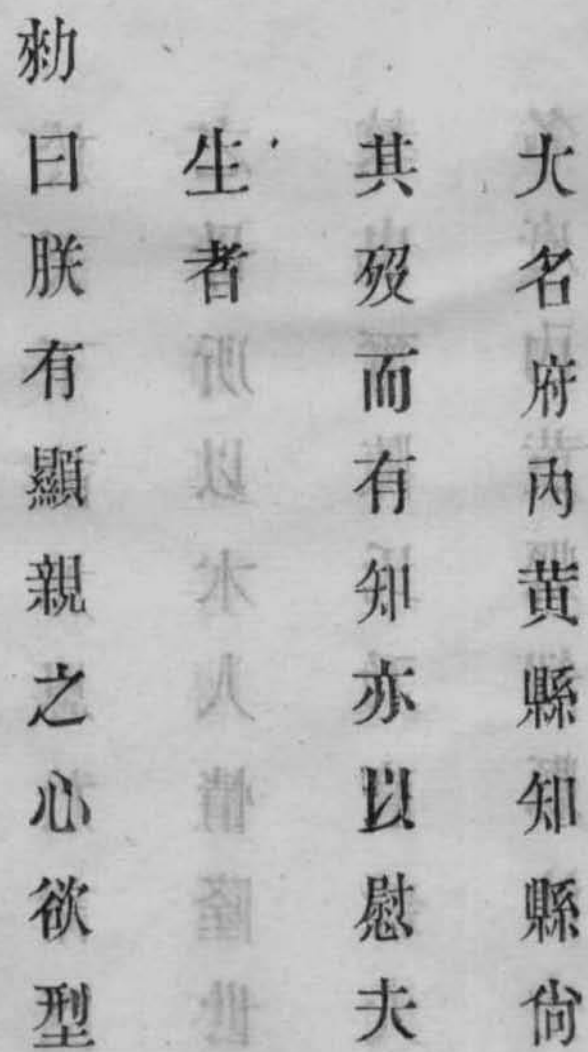 大名府內黄縣知縣尙
其歿而有知亦以慰夫
生者
勑曰朕有顯親之心欲型